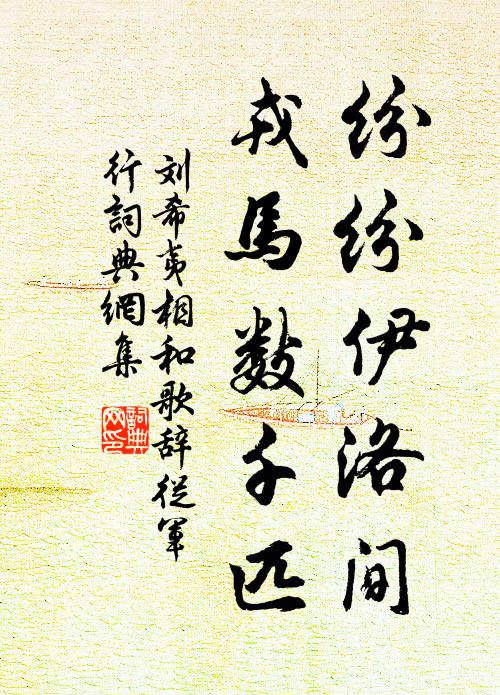 纷纷伊洛间
戎马数千匹
刘希夷相和歌辞从军
行词典网集
詞典
网印